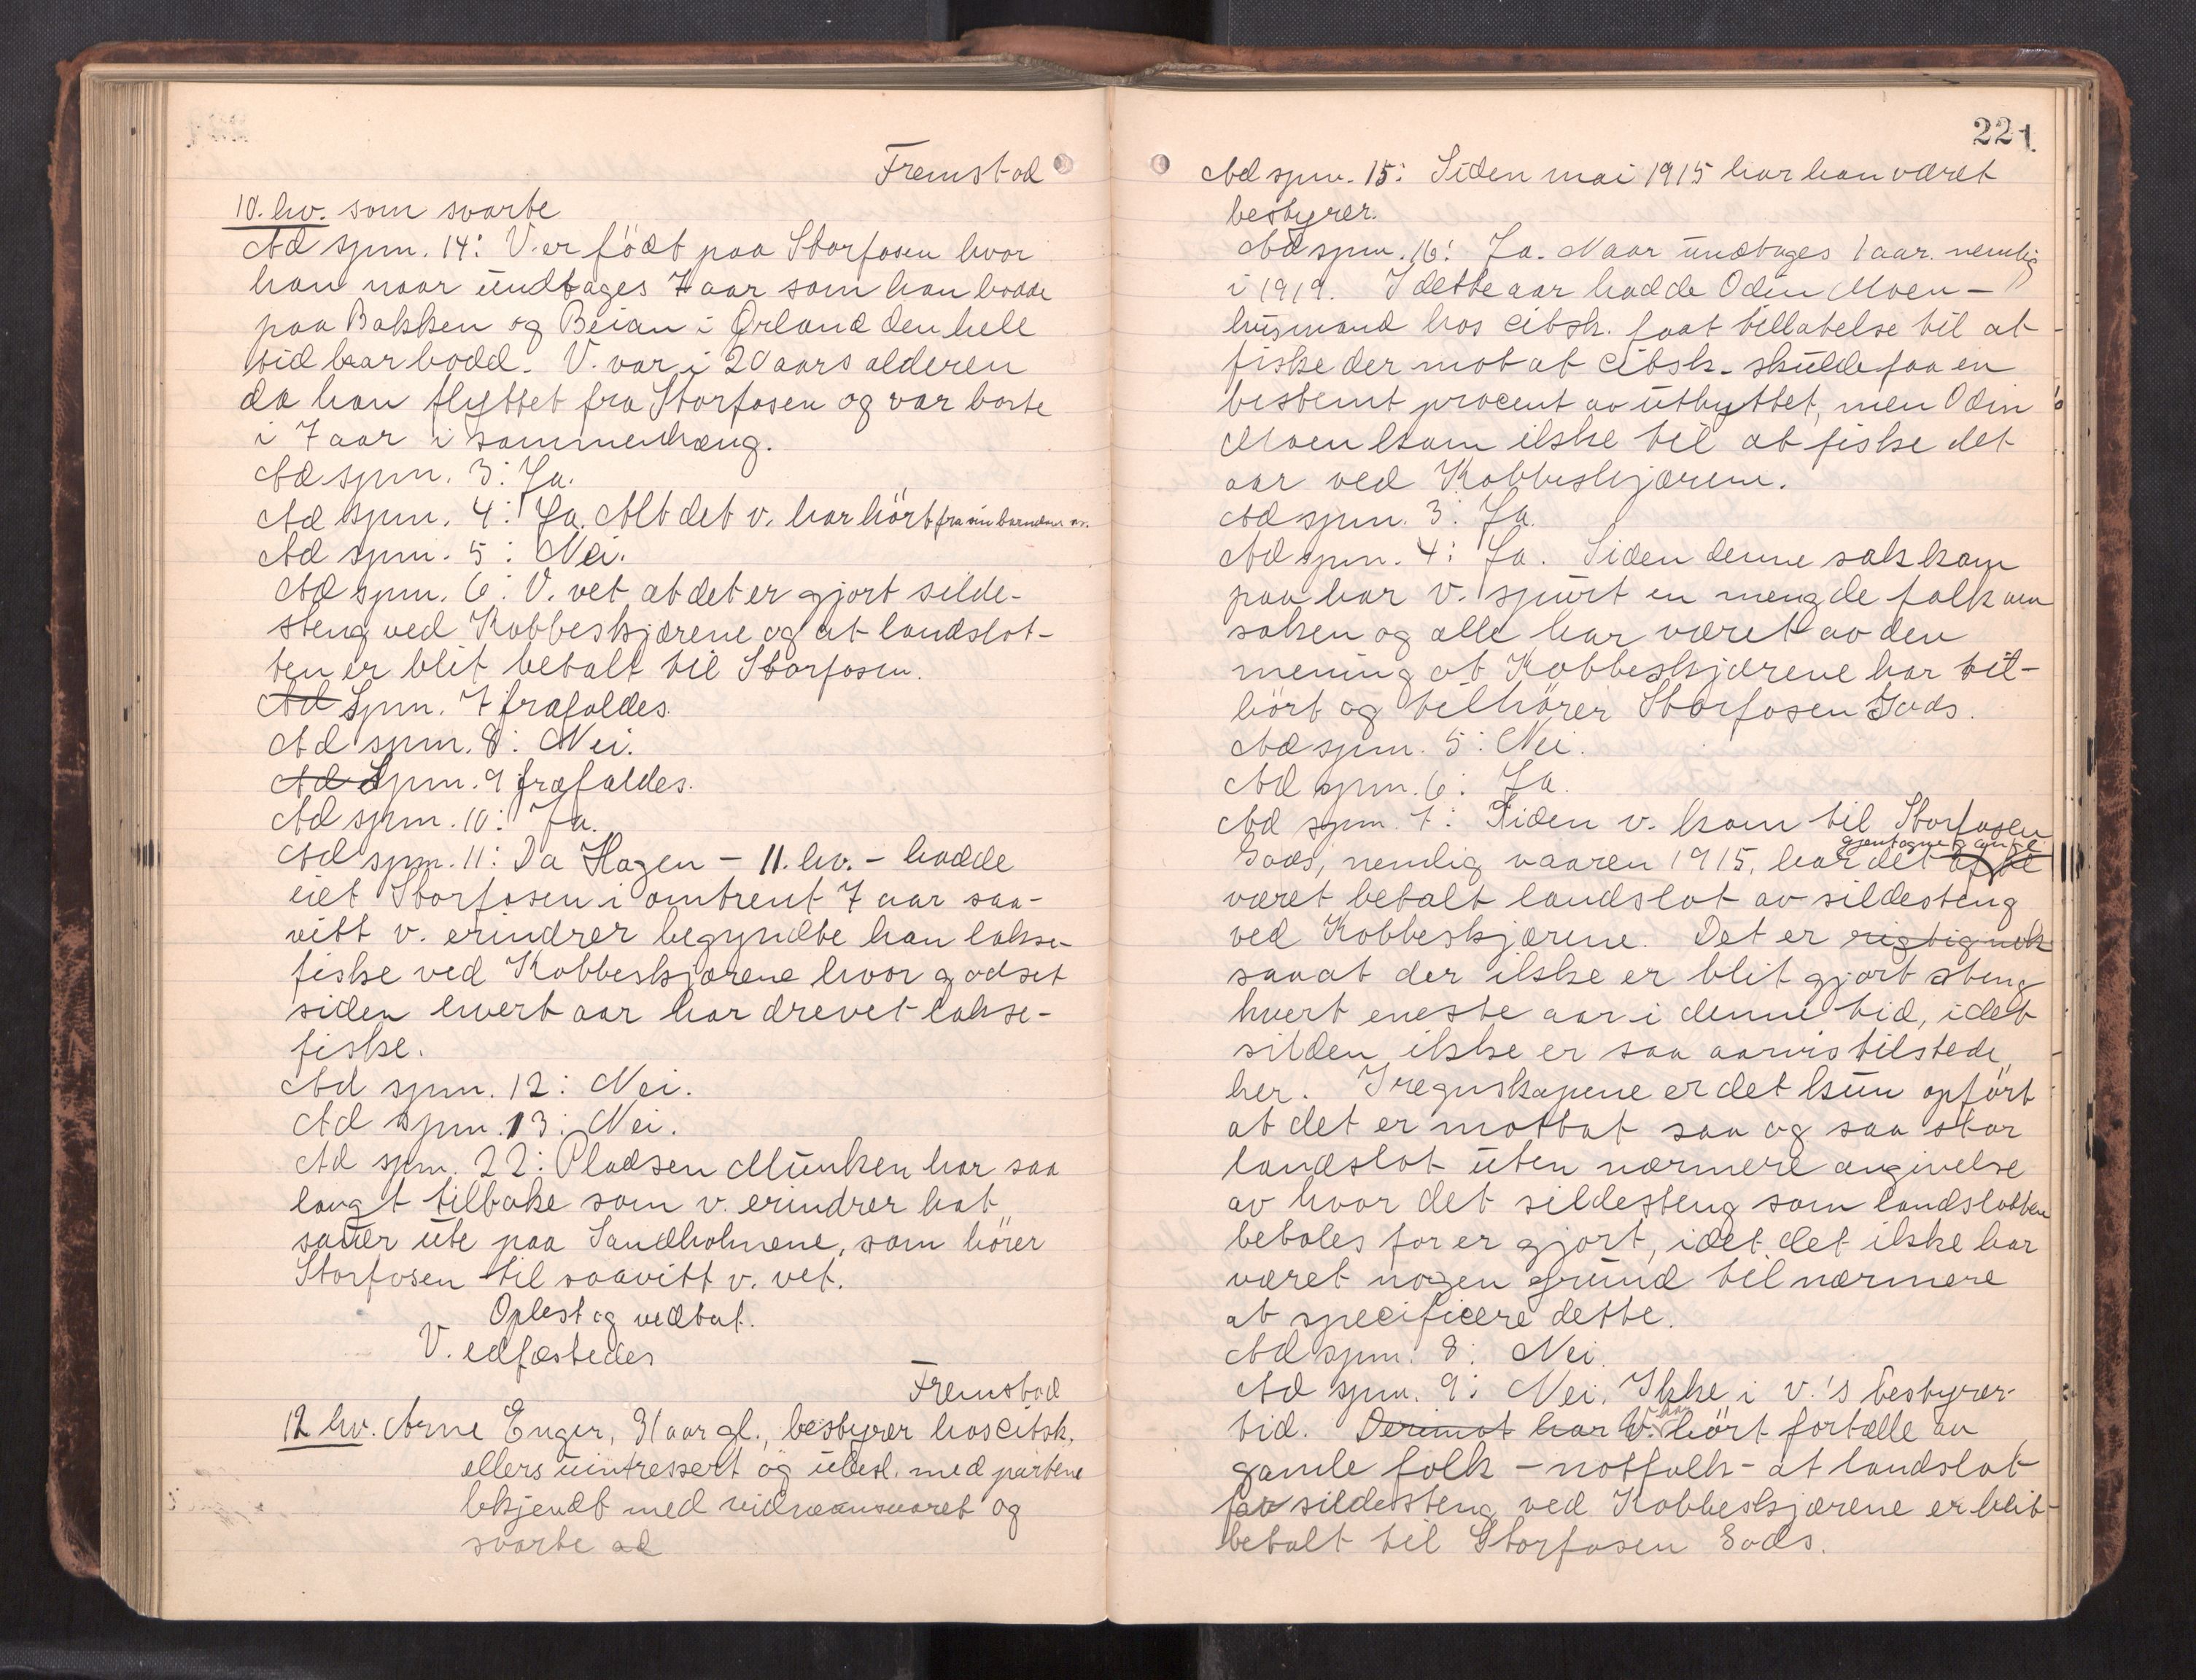 Fremstod
10. hv. som svarte
Ad spm. 14: V. er født paa Storfosen hvor
han naar undtages 7 aar som han bodde
paa Bakken og Beian i Ørland den hele
tid har bodd. V. var i 20 aars alderen
da han flyttet fra Storfosen og var borte
i 7 aar i sammenhæng.
Ad spm. 3: Ja.
Ad spm. 4: Ja. Alt det v. har hørt fra sin barndom av.
Ad spm. 5: Nei.
Ad spm. 6: V. vet at det er gjort silde-
steng ved Kobbeskjærene og at landslot-
ten er blit betalt til Storfosen.
Ad Spm. 7 frafaldes.
Ad spm. 8: Nei.
Ad Spm. 9 frafaldes.
Ad spm. 10: Ja.
Ad spm. 11: Da Hagen – 11. hv. – hadde
eiet Storfosen i omtrent 7 aar saa-
vitt v. erindrer begyndte han lakse-
fiske ved Kobbeskjærene hvor godset
siden hvert aar har drevet lakse-
fiske.
Ad spm. 12: Nei.
Ad spm. 13: Nei.
Ad spm. 22: Pladsen Munken har saa
langt tilbake som v. erindrer hat
sauer ute paa Sandholmene, som hører
Storfosen til saavitt v. vet.
Oplest og vedtat.
V. edfæstedes
Fremstod
12 hv. Arne Enger, 31 aar gl., bestyrer hos citsk.
ellers uintressert og ubesl. med partene
bekjendt med vidneansvaret og
svarte ad
221.
Ad spm. 15: Siden mai 1915 har han været
bestyrer.
Ad spm. 16: Ja. Naar undtages 1 aar. nemlig
i 1919. I dette aar hadde Odin Moen –
husmand hos citsk. faat tillatelse til at
fiske der mot at citsk. skulde faa en
bestemt procent av utbyttet, men Odin
Moen kom ikke til at fiske det
aar ved Kobbeskjærene.
Ad spm. 3: Ja.
Ad spm. 4: Ja. Siden denne sak kom
paa har v. spurt en mengde folk om
saken og alle har været av den
mening at Kobbeskjærene har til-
hørt og tilhører Storfosen Gods.
Ad spm. 5: Nei.
Ad spm. 6: Ja.
Ad spm. 7: Siden v. kom til Storfosen
gjentagne gange
Gods, nemlig vaaren 1915, har det ofte
været betalt landslot av sildesteng
ved Kobbeskjærene. Det er rigtignok
saa at der ikke er blit gjort steng
hvert eneste aar i denne tid, idet
silden ikke er saa aarvis tilstede
her. I regnskapene er det kun opført
at det er mottat saa og saa stor
landslot uten nærmere angivelse
av hvor det sildesteng som landslotten
betales for er gjort, idet det ikke har
været nogen grund til nærmere
at specificere dette.
Ad spm. 8: Nei.
Ad spm. 9: Nei. Ikke i v.'s bestyrer-
tid. Derimot har V. har hørt fortælle av
gamle folk – notfolk – at landslot
for sildesteng ved Kobbeskjærene er blit
betalt til Storfosen Gods.